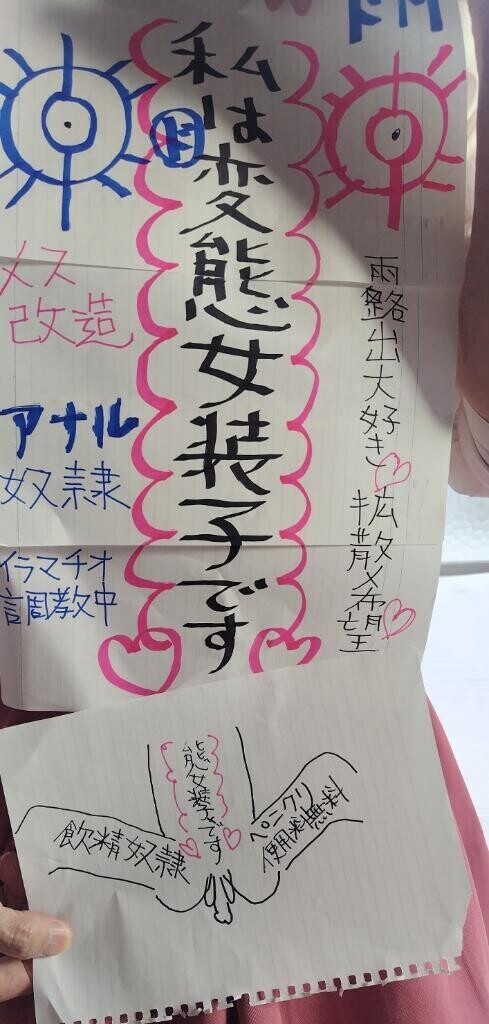 ドM
私は変態女装子です
ド
雨露出大好き♡拡散希望♡
メス
改造
アナル
奴隷
イラマチオ
調教中
態女装子です
飲精奴隷
ペニクリ
使用料無料